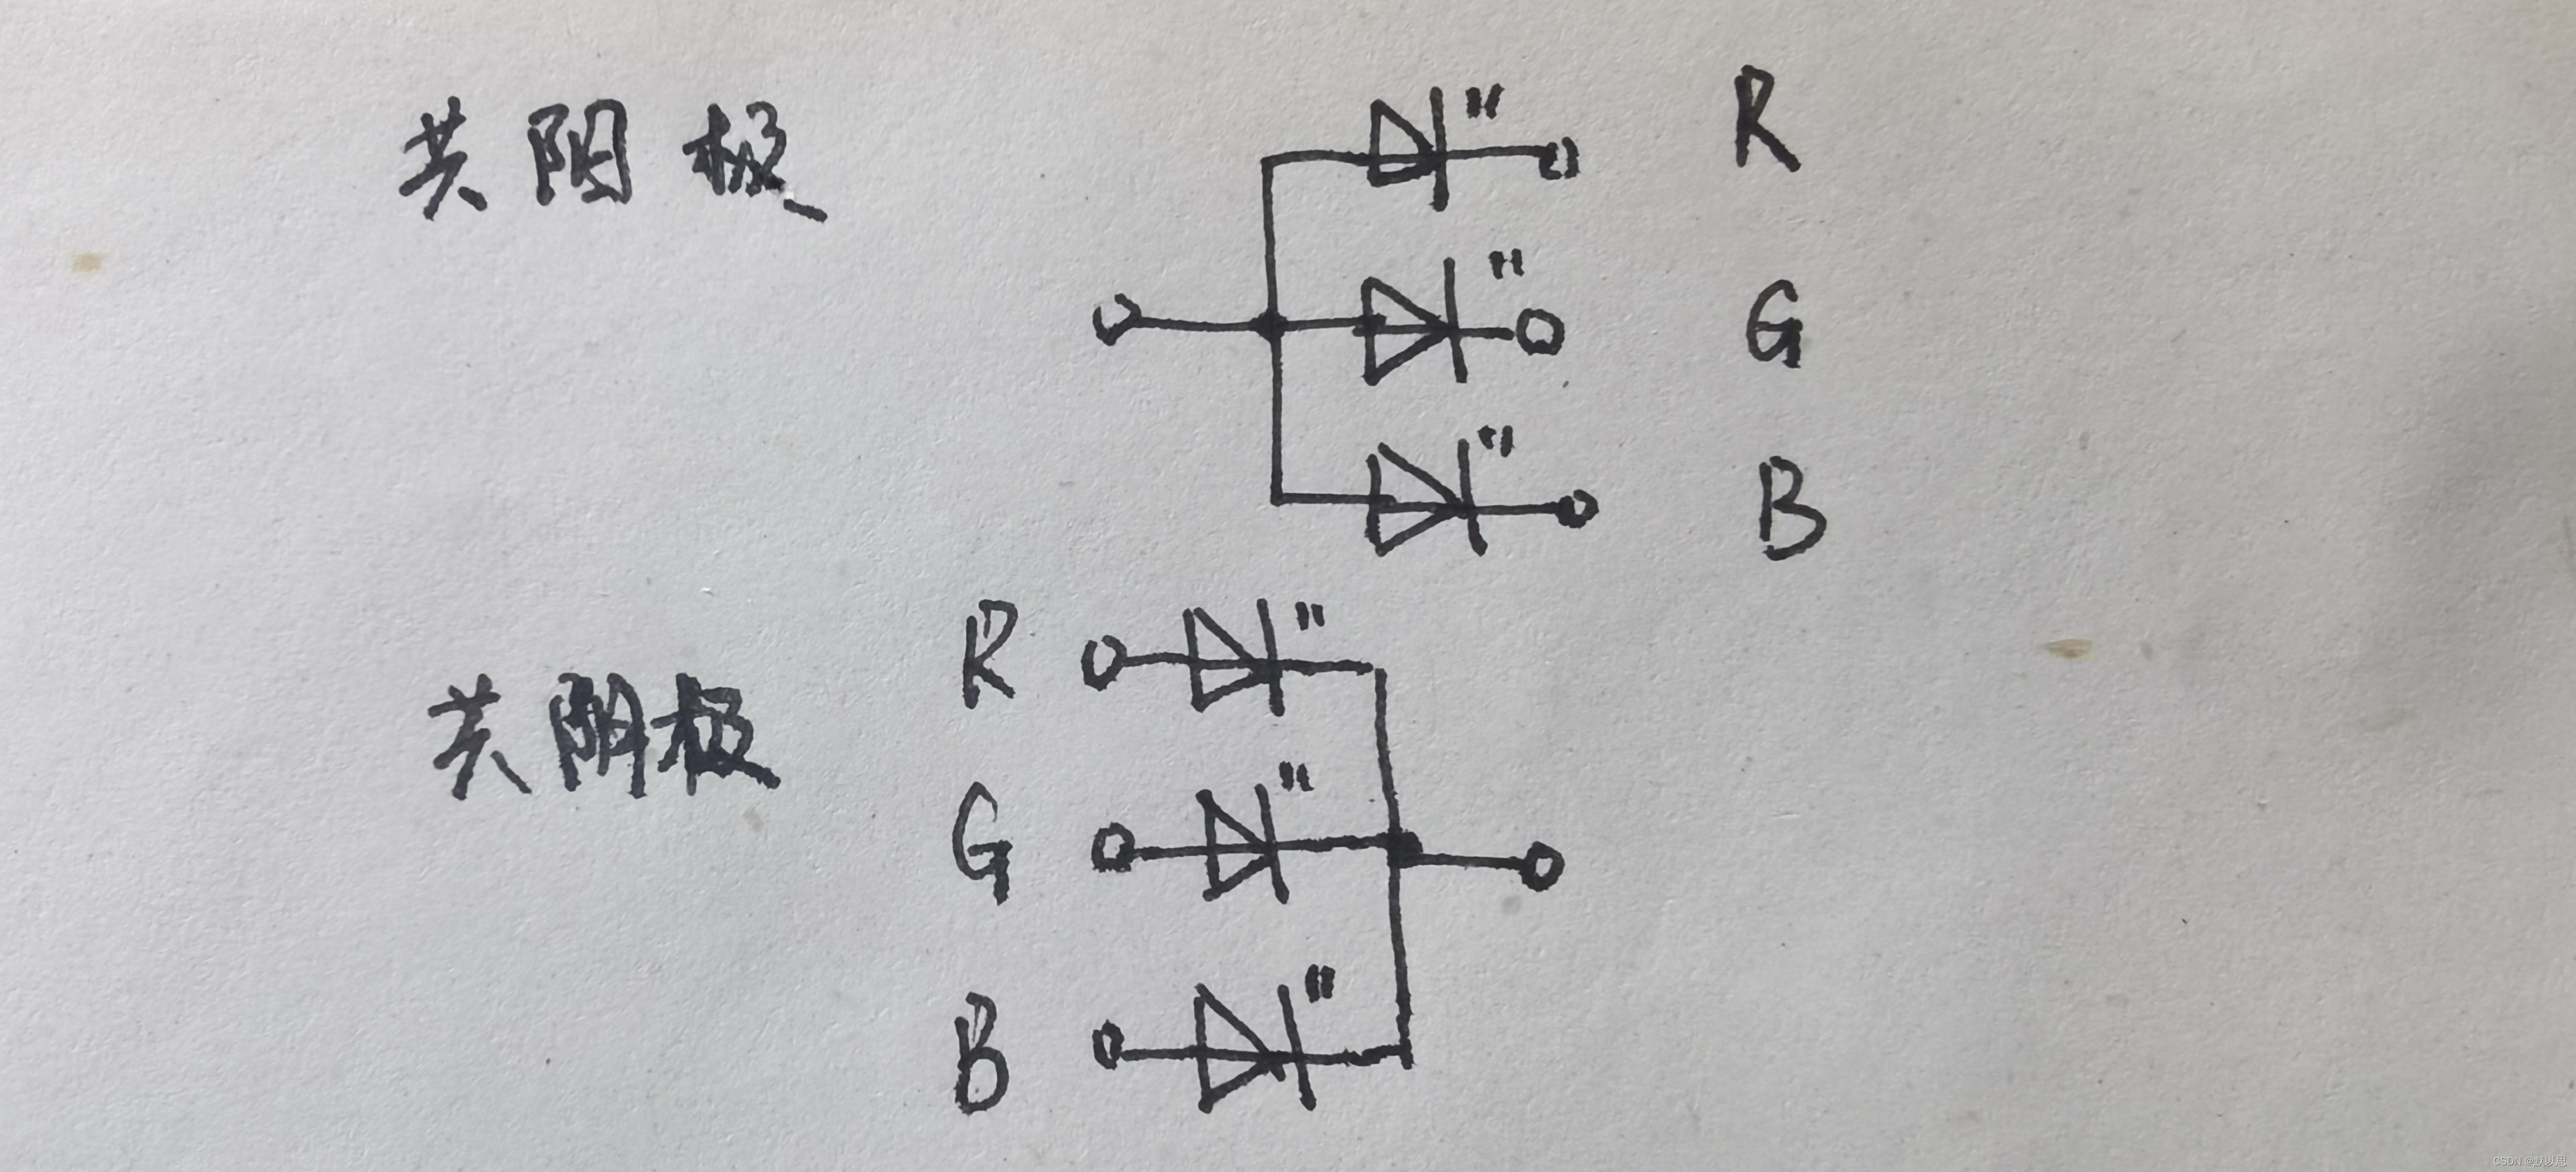 共阳极
R
G
B
R
共阴极
G
B
CSDN